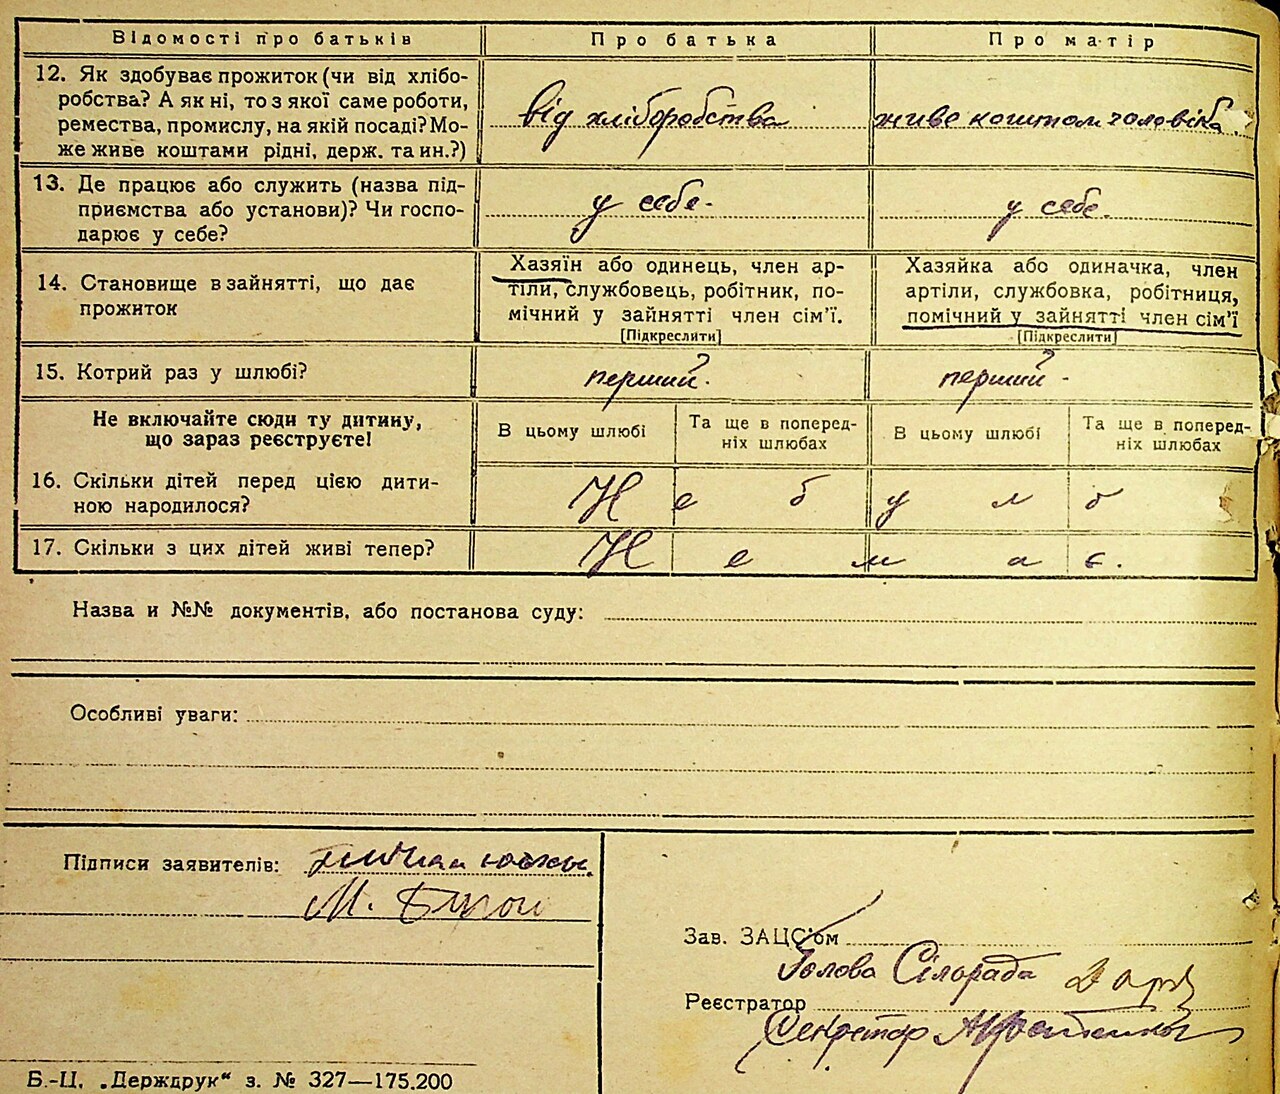 Відомості про батьків
Про батька
Про матір
12. Як здобуває прожиток (чи від хлібо-
робства? А як ні, то з якої саме роботи,
ремества, промислу, на якій посаді? Мо-
же живе коштами рідні, держ. та ин.?)
від хліборобства
живе коштом чоловіка
13. Де працює або служить (назва під-
приємства або установи)? Чи госпо-
дарює у себе?
у себе.
у себе.
14. Становище в зайнятті, що дає
прожиток
Хазяїн або одинець, член ар-
тіли, службовець, робітник, по-
мічний у зайнятті член сім’ї.
[Підкреслити]
Хазяйка або одиначка, член
артіли, службовка, робітниця,
помічний у зайнятті член сім’ї
[Підкреслити]
15. Котрий раз у шлюбі?
перший.
перший -
Не включайте сюди ту дитину,
що зараз реєструєте!
В цьому шлюбі
Та ще в поперед-
ніх шлюбах
В цьому шлюбі
Та ще в поперед-
ніх шлюбах
16. Скільки дітей перед цією дити-
ною народилося?
Не було
17. Скільки з цих дітей живі тепер?
Немає.
Назва и №№ документів, або постанова суду:
Особливі уваги:
Підписи заявителів:
М.
Зав. ЗАЦС'ом
Голова Сілорада
Реєстратор
Секретар
Б.-Ц. „Держдрук“ з. № 327—175.200